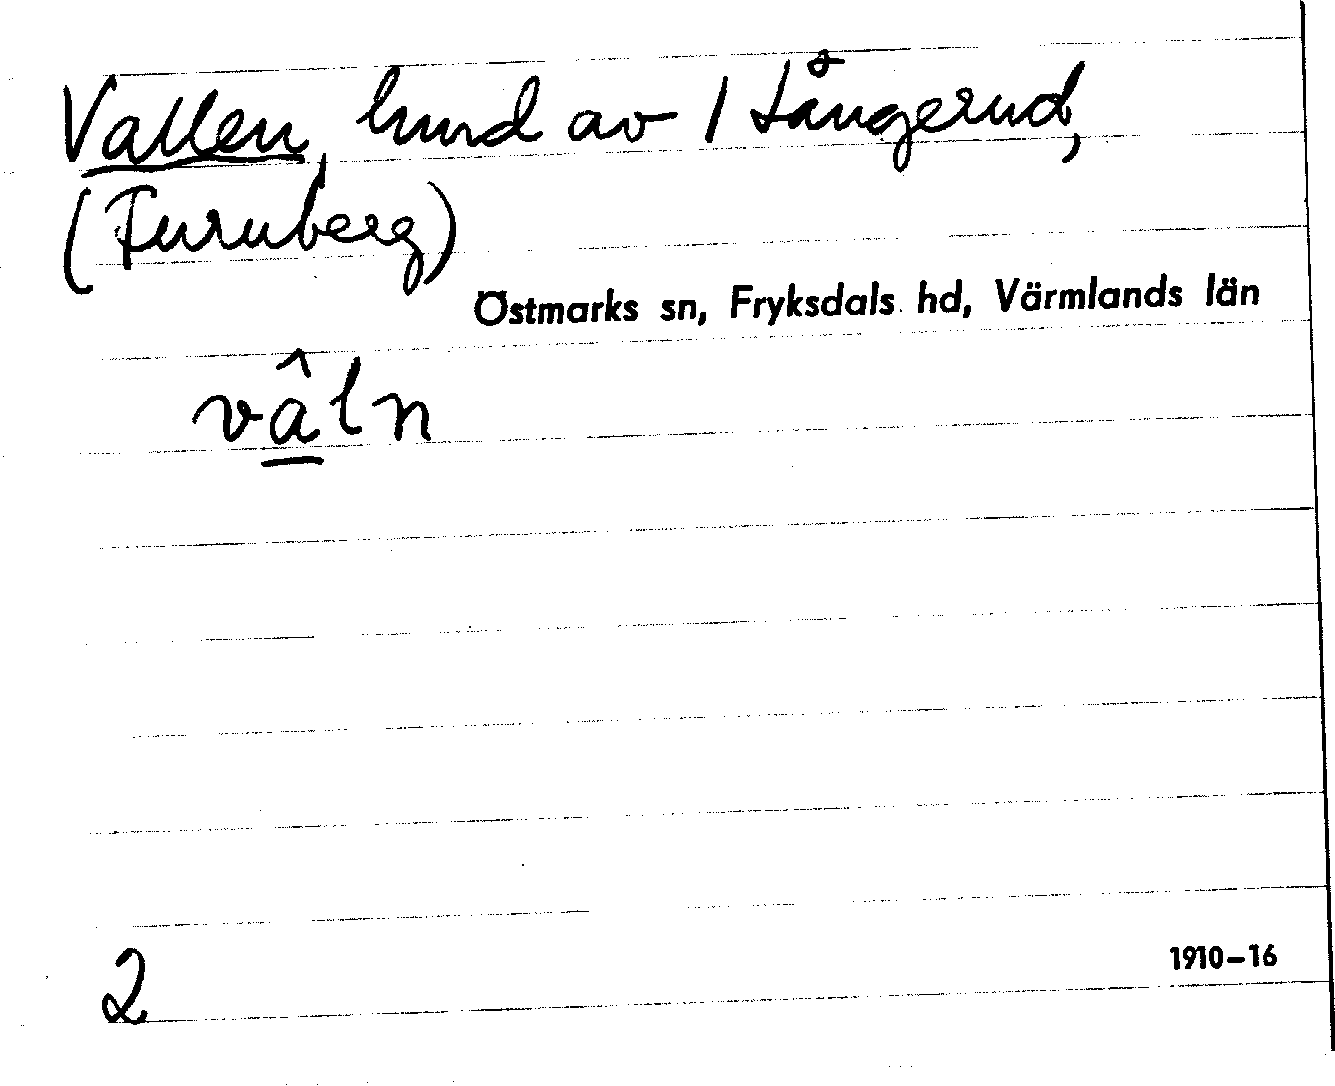 Vallen, hmd av 1 Långerud,
(Furuberg)
Östmarks sn, Fryksdals hd, Värmlands län
vâln
2
1910–16